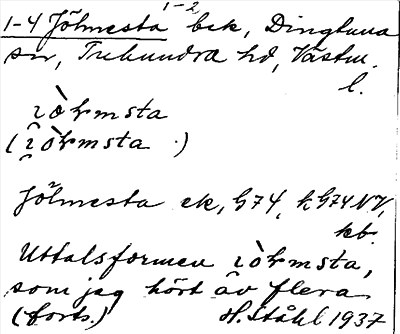 1-2
1-4 Jölmesta bek, Dingtuna
sn, Tuhundra hd, Västm.
l.
ıòłmsta
(ı̂òłmsta )
Jölmesta ek, G74, k G74NV,
kb.
Uttalsformen ıòłmsta,
som jag hört av flera
(forts.) H. Ståhl 1937